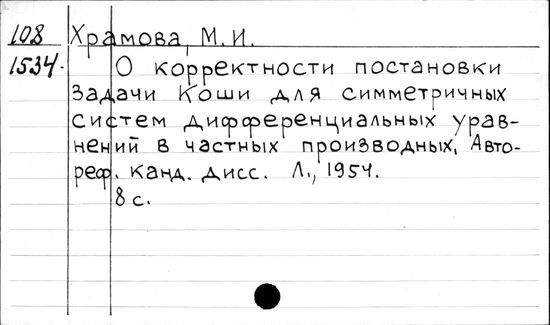 108 Храмова, М.И.
1534. О корректности постановки
задачи Коши для симметричных
систем дифференциальных урав-
нений в частных производных. Авто-
реф. канд. дисс. Л., 1954.
8 с.